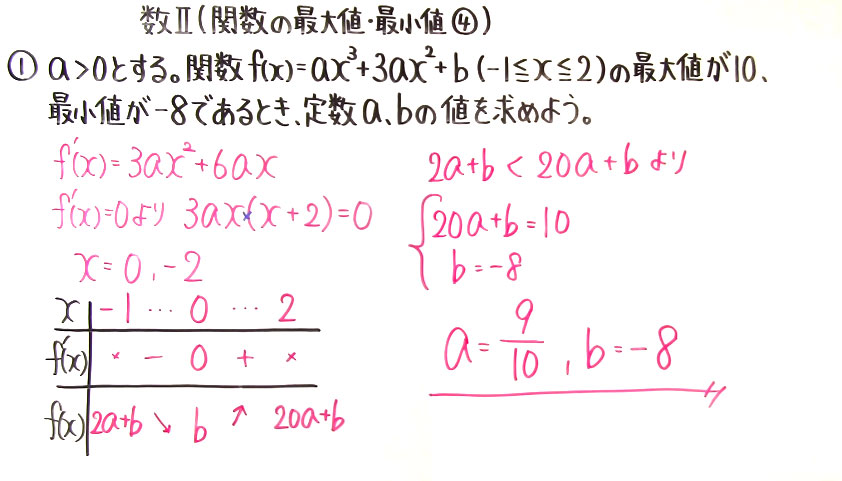 数Ⅱ(関数の最大値・最小値④)
① a>0とする。関数 f(x)=ax³+3ax²+b (-1≦x≦2)の最大値が10、
最小値が-8であるとき、定数a、bの値を求めよう。
f'(x)=3ax²+6ax
f'(x)=0より 3ax×(x+2)=0
x=0,-2
x -1 … 0 … 2
f'(x) × - 0 + ×
f(x) 2a+b ↘ b ↗ 20a+b
2a+b < 20a+b より
20a+b=10
b=-8
a=9/10, b=-8